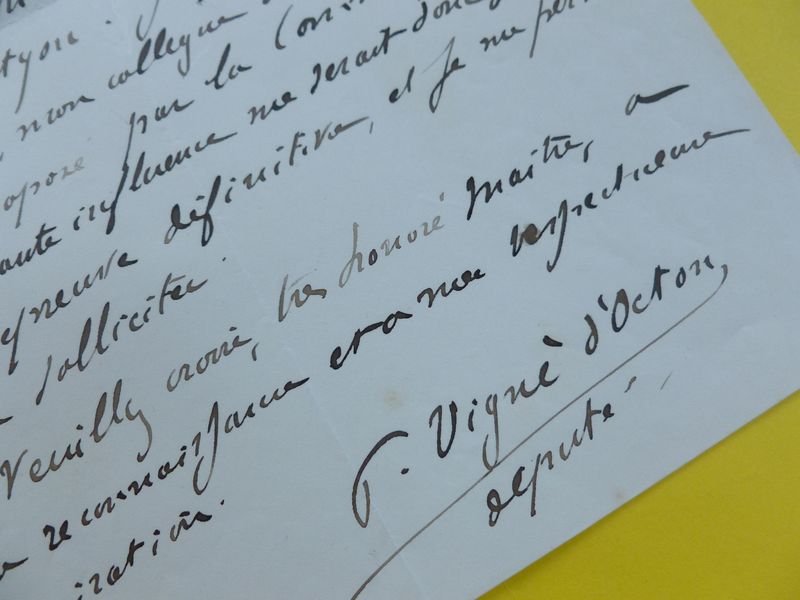 tyon.
mon collègue
oposé par la Com
aute influence me serait donc
épreuve définitive, et je me per
solliciter.
Veuillez croire, très honoré Maître, a
reconnaissance et a ma respectueuse
iration.
P. Vigné d'Octon,
député.